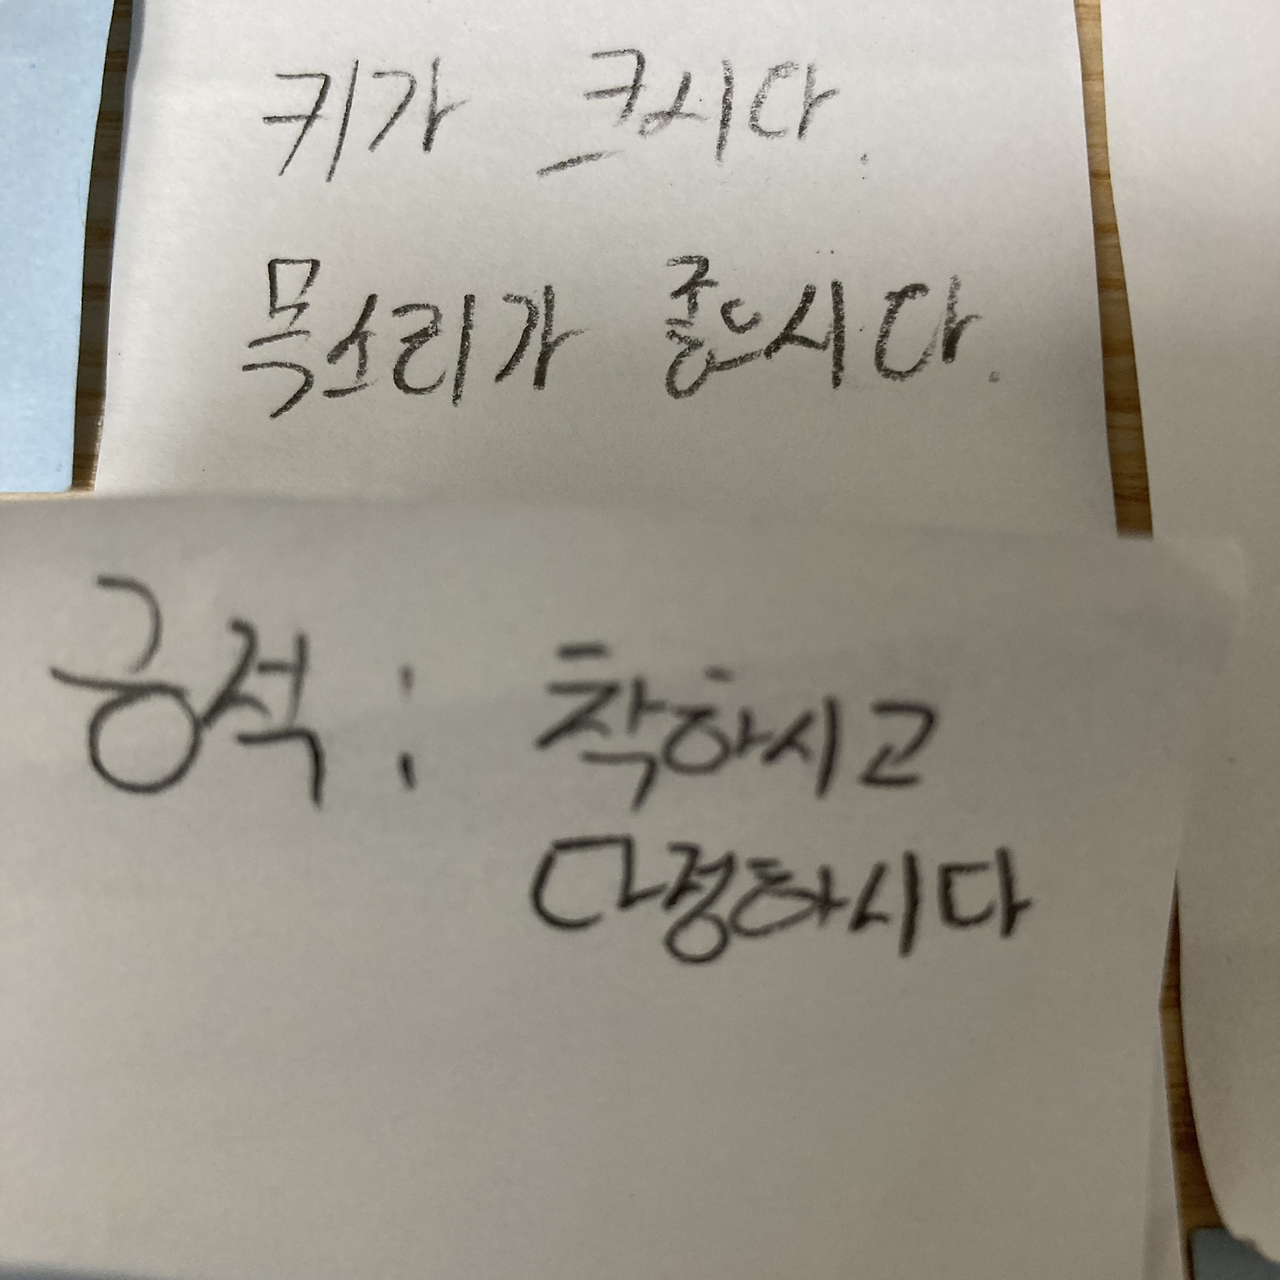 키가 크시다.
목소리가 좋으시다.
긍적 : 착하시고
다정하시다